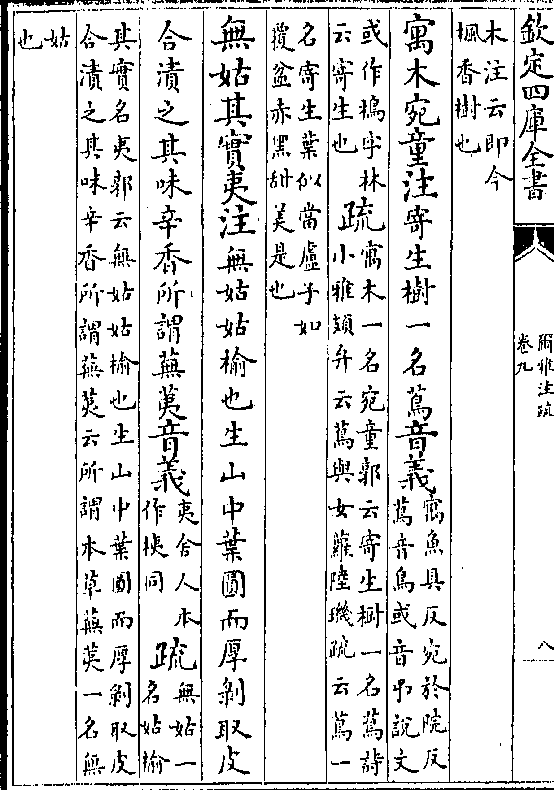 欽定四庫全書
爾雅注疏
卷九
八
木注云即今
楓香樹也
寓木宛童注寄生樹一名蔦音義
寓魚具反宛於阮反
蔦音鳥或音弔說文
或作樢字林
云寄生也
疏
寓木一名宛童郭云寄生樹一名蔦詩
小雅頍弁云蔦與女蘿陸璣疏云蔦一
名寄生葉似當盧子如
覆盆赤黑甜美是也
無姑其實夷注無姑姑榆也生山中葉圓而厚剝取皮
合漬之其味辛香所謂蕪荑音義
夷舍人本
作桋同
疏
無姑一
名姑榆
其實名夷郭云無姑姑榆也生山中葉圓而厚剝取皮
合漬之其味辛香所謂蕪荑云所謂本草蕪荑一名無
姑
也